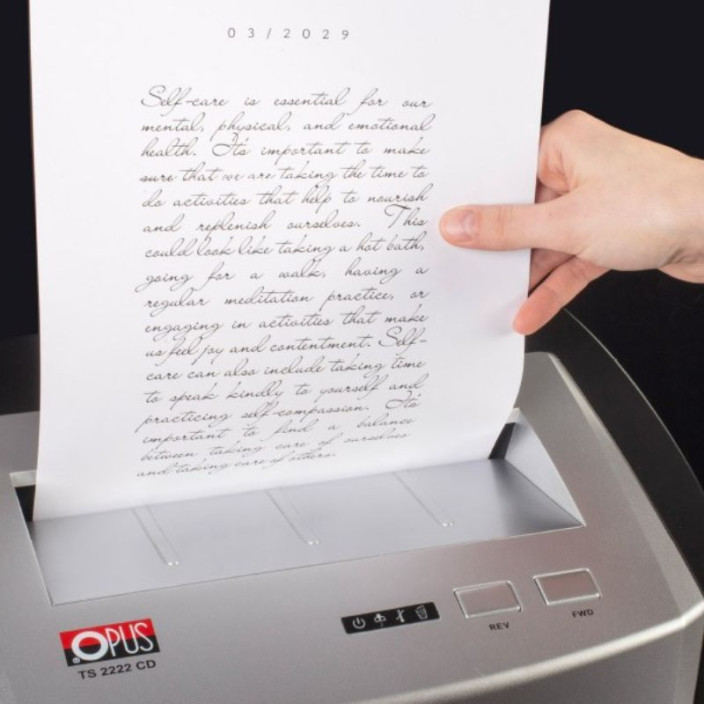 03/2029
Self-care is essential for our
mental, physical, and emotional
health. It's important to make
sure that we are taking the time to
do activities that help to nourish
and replenish ourselves. This
could look like taking a hot bath,
going for a walk, having a
regular meditation practice, or
engaging in activities that make
us feel joy and contentment. Self-
care can also include taking time
to speak kindly to yourself and
practicing self-compassion. It's
important to find a balance
between taking care of ourselves
and taking care of others.
OPUS
TS 2222 CD
REV
FWD